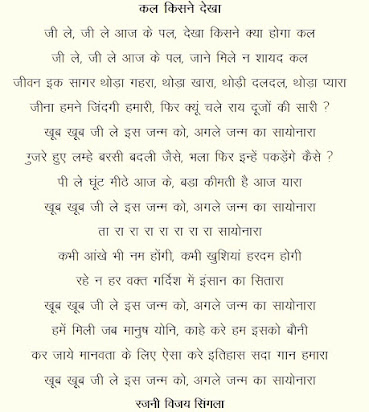 कल किसने देखा
जी ले, जी ले आज के पल, देखा किसने क्या होगा कल
जी ले, जी ले आज के पल, जाने मिले न शायद कल
जीवन इक सागर थोड़ा गहरा, थोड़ा खारा, थोड़ी दलदल, थोड़ा प्यारा
जीना हमने जिंदगी हमारी, फिर क्यूं चले राय दूजों की सारी ?
खूब खूब जी ले इस जन्म को, अगले जन्म का सायोनारा
गुजरे हुए लम्हे बरसी बदली जैसे, भला फिर इन्हें पकड़ेंगे कैसे ?
पी ले घूंट मीठे आज के, बड़ा कीमती है आज यारा
खूब खूब जी ले इस जन्म को, अगले जन्म का सायोनारा
ता रा रा रा रा रा रा रा सायोनारा
कभी आंखे भी नम होंगी, कभी खुशियां हरदम होगी
रहे न हर वक्त गर्दिश में इंसान का सितारा
खूब खूब जी ले इस जन्म को, अगले जन्म का सायोनारा
हमें मिली जब मानुष योनि, काहे करे हम इसको बौनी
कर जाये मानवता के लिए ऐसा करे इतिहास सदा गान हमारा
खूब खूब जी ले इस जन्म को, अगले जन्म का सायोनारा
रजनी विजय सिंगला